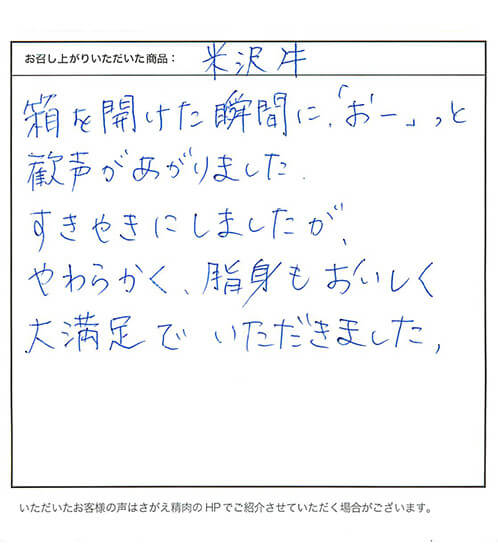 お召し上がりいただいた商品： 米沢牛
箱を開けた瞬間に、「おー」っと
歓声があがりました.
すきやきにしましたが、
やわらかく、脂身もおいしく
大満足でいただきました,
いただいたお客様の声はさがえ精肉のHPでご紹介させていただく場合がございます。